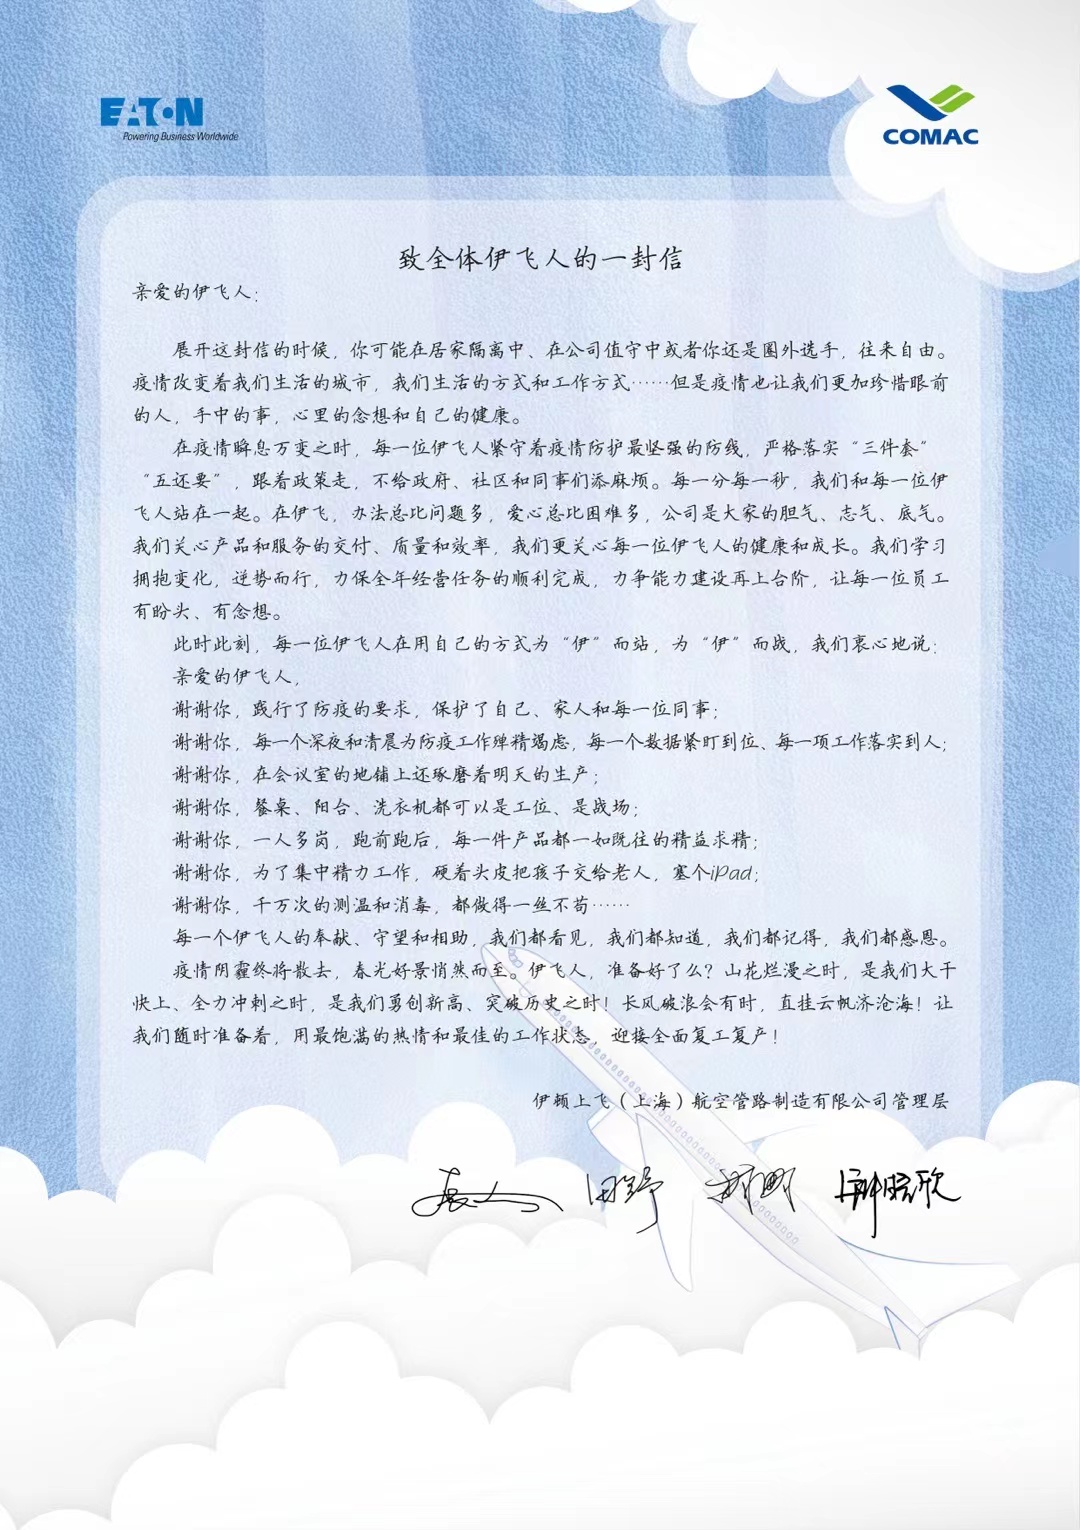 EATON
Powering Business Worldwide
COMAC
致全体伊飞人的一封信
亲爱的伊飞人：
展开这封信的时候，你可能在居家隔离中、在公司值守中或者你还是圈外选手，往来自由。
疫情改变着我们生活的城市，我们生活的方式和工作方式……但是疫情也让我们更加珍惜眼前
的人，手中的事，心里的念想和自己的健康。
在疫情瞬息万变之时，每一位伊飞人紧守着疫情防护最坚强的防线，严格落实“三件套”
“五还要”，跟着政策走，不给政府、社区和同事们添麻烦。每一分每一秒，我们和每一位伊
飞人站在一起。在伊飞，办法总比问题多，爱心总比困难多，公司是大家的胆气、志气、底气。
我们关心产品和服务的交付、质量和效率，我们更关心每一位伊飞人的健康和成长。我们学习
拥抱变化，逆势而行，力保全年经营任务的顺利完成，力争能力建设再上台阶，让每一位员工
有盼头、有念想。
此时此刻，每一位伊飞人在用自己的方式为“伊”而站，为“伊”而战，我们衷心地说：
亲爱的伊飞人，
谢谢你，践行了防疫的要求，保护了自己、家人和每一位同事；
谢谢你，每一个深夜和清晨为防疫工作殚精竭虑，每一个数据紧盯到位、每一项工作落实到人；
谢谢你，在会议室的地铺上还琢磨着明天的生产；
谢谢你，餐桌、阳台、洗衣机都可以是工位、是战场；
谢谢你，一人多岗，跑前跑后，每一件产品都一如既往的精益求精；
谢谢你，为了集中精力工作，硬着头皮把孩子交给老人，塞个iPad；
谢谢你，千万次的测温和消毒，都做得一丝不苟……
每一个伊飞人的奉献、守望和相助，我们都看见，我们都知道，我们都记得，我们都感恩。
疫情阴霾终将散去，春光好景悄然而至。伊飞人，准备好了么？山花烂漫之时，是我们大干
快上、全力冲刺之时，是我们勇创新高、突破历史之时！长风破浪会有时，直挂云帆济沧海！让
我们随时准备着，用最饱满的热情和最佳的工作状态，迎接全面复工复产！
伊顿上飞（上海）航空管路制造有限公司管理层